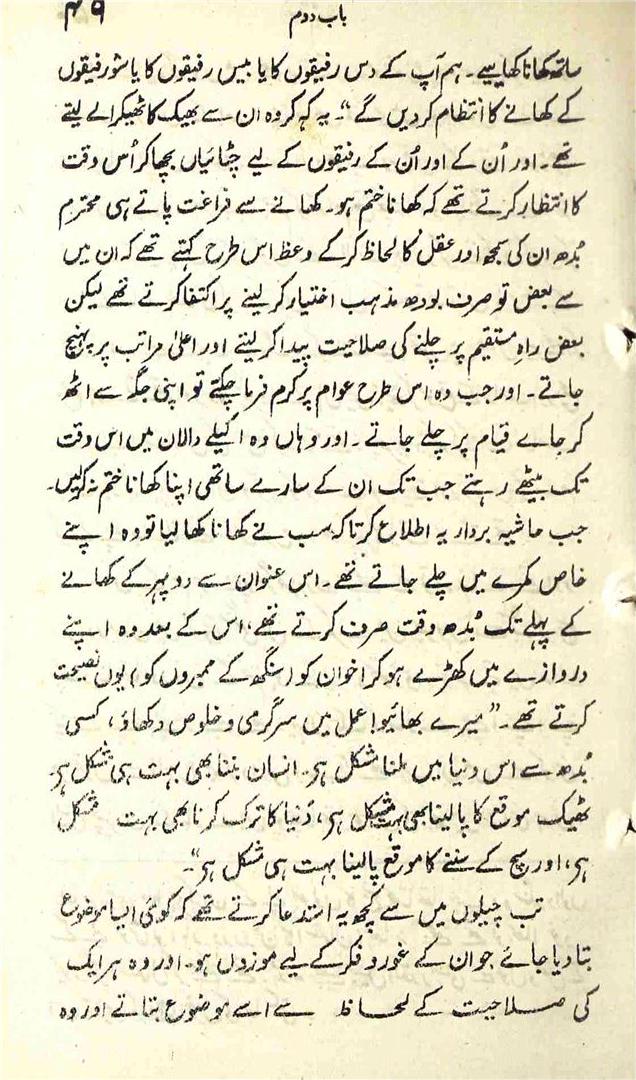 باب دوم
۴۹
ساتھ کھانا کھایئے۔ ہم آپ کے دس رفیقوں کا یا بیس رفیقوں کا یا سو رفیقوں
کے کھانے کا انتظام کردیں گے“۔ یہ کہہ کر وہ ان سے بھیک کا ٹھیکرا لے لیتے
تھے۔ اور اُن کے اور اُن کے رفیقوں کے لیے چٹائیاں بچھا کر اُس وقت
کا انتظار کرتے تھے کہ کھانا ختم ہو۔ کھانے سے فراغت پاتے ہی محترم
بُدھ ان کی سمجھ اور عقل کا لحاظ کرکے وعظ اس طرح کہتے تھے کہ ان میں
سے بعض تو صرف بودھ مذہب اختیار کرلینے پر اکتفا کرتے تھے لیکن
بعض راہِ مستقیم پر چلنے کی صلاحیت پیدا کرلیتے اور اعلیٰ مراتب پر پہنچ
جاتے۔ اور جب وہ اس طرح عوام پر کرم فرما چکتے تو اپنی جگہ سے اٹھ
کر جاے قیام پر چلے جاتے۔ اور وہاں وہ اکیلے دالان میں اس وقت
تک بیٹھے رہتے جب تک ان کے سارے ساتھی اپنا کھانا ختم نہ کرلیں۔
جب حاشیہ بردار یہ اطلاع کرتا کہ سب نے کھانا کھا لیا تو وہ اپنے
خاص کمرے میں چلے جاتے تھے۔ اس عنوان سے دوپہر کے کھانے
کے پہلے تک بُدھ وقت صرف کرتے تھے، اس کے بعد وہ اپنے
دروازے میں کھڑے ہوکر اخوان کو (سنگھ کے ممبروں کو) یوں نصیحت
کرتے تھے۔ ”میرے بھائیو! عمل میں سرگرمی و خلوص دکھاؤ، کسی
بُدھ سے اس دنیا میں ملنا مشکل ہے۔ انسان بننا بھی بہت ہی مشکل ہے۔
ٹھیک موقع کا پالینا بھی بہت مشکل ہے، دُنیا کا ترک کرنا بھی بہت مشکل
ہے، اور سچ کے سننے کا موقع پالینا بہت ہی مشکل ہے“۔
تب چیلوں میں سے کچھ یہ استدعا کرتے تھے کہ کوئی ایسا موضوع
بتا دیا جائے جو ان کے غور و فکر کے لیے موزوں ہو۔ اور وہ ہر ایک
کی صلاحیت کے لحاظ سے اسے موضوع بتاتے اور وہ